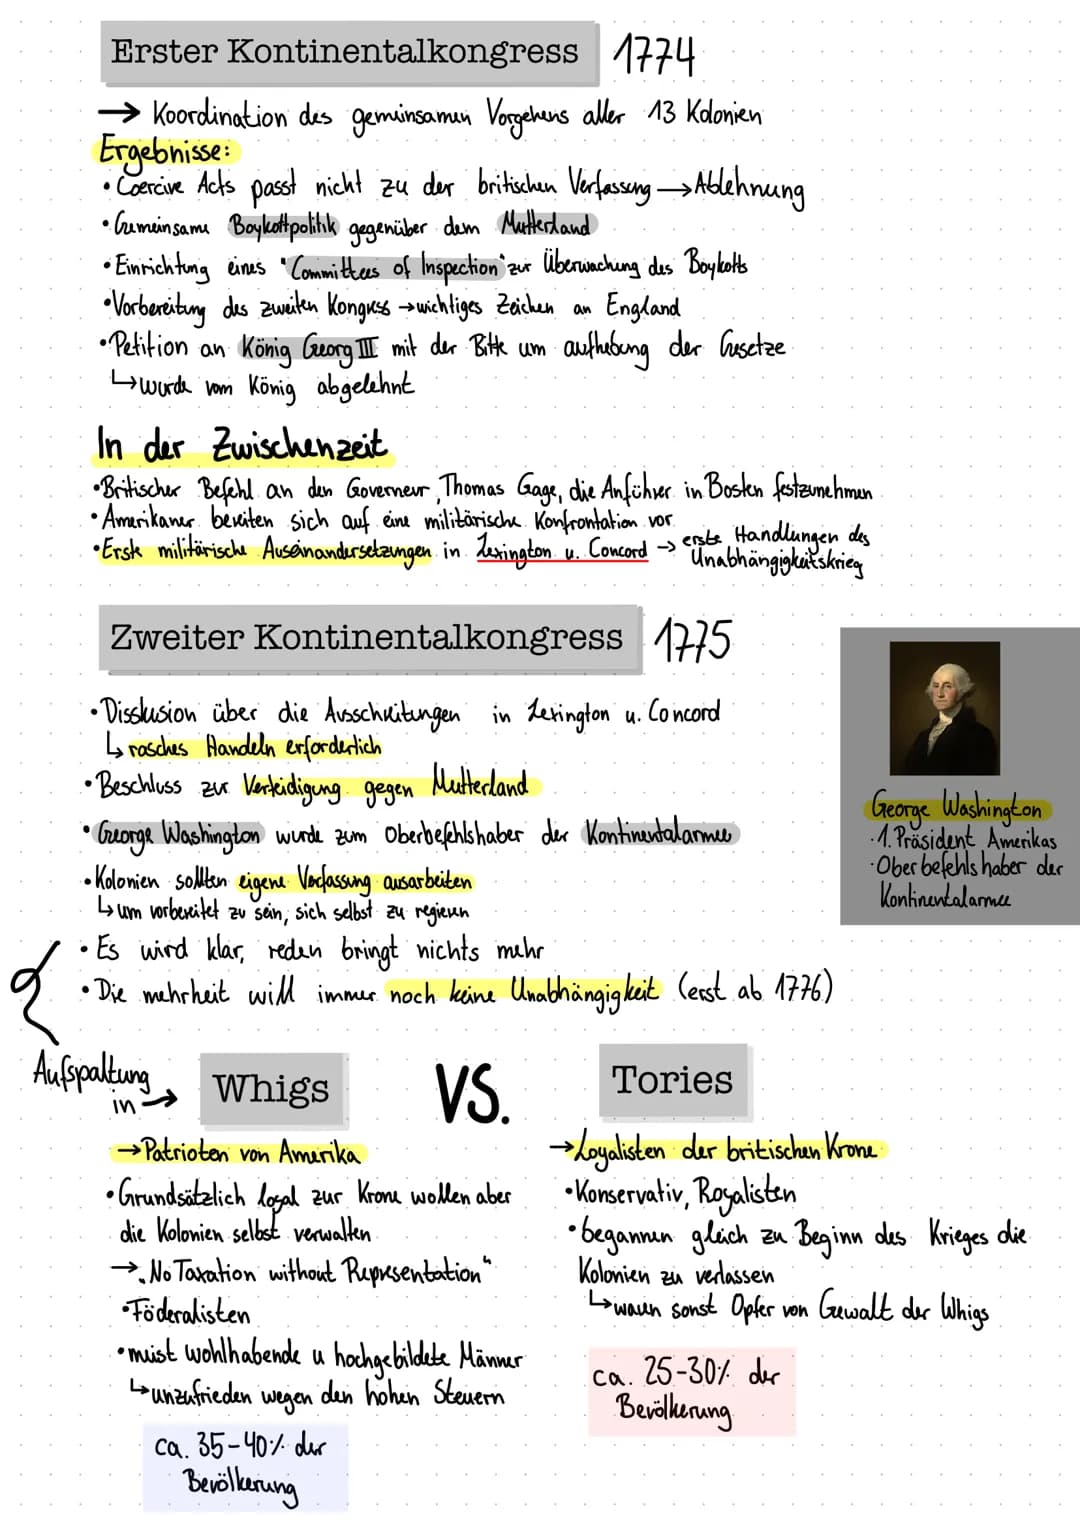 Erster Kontinentalkongress 1774
→ Koordination des gemeinsamen Vorgehens aller 13 Kolonien
Ergebnisse:
• Coercive Acts passt nicht zu der britischen Verfassung → Ablehnung
• Gemeinsame Boykottpolitik gegenüber dem Mutterland
• Einrichtung eines "Committees of Inspection" zur Überwachung des Boykotts
• Vorbereitung des zweiten Kongress → wichtiges Zeichen an England
• Petition an König Georg III mit der Bitte um aufhebung der Gesetze
↳ wurde vom König abgelehnt
In der Zwischenzeit
• Britischer Befehl an den Governeur, Thomas Gage, die Anführer in Boston festzunehmen
• Amerikaner bereiten sich auf eine militärische Konfrontation vor
• Erste militärische Auseinandersetzungen in Lexington u. Concord → erste Handlungen des
Unabhängigkeitskrieg
Zweiter Kontinentalkongress 1775
• Disskusion über die Ausschreitungen in Lexington u. Concord
↳ rasches Handeln erforderlich
• Beschluss zur Verteidigung gegen Mutterland
• George Washington wurde zum Oberbefehlshaber der Kontinentalarmee
• Kolonien sollten eigene Verfassung ausarbeiten
↳ um vorbereitet zu sein, sich selbst zu regieren
• Es wird klar, reden bringt nichts mehr
• Die mehrheit will immer noch keine Unabhängigkeit (erst ab 1776)
George Washington
· 1. Präsident Amerikas
· Oberbefehlshaber der
Kontinentalarmee
Aufspaltung
in → Whigs VS. Tories
→ Patrioten von Amerika
• Grundsätzlich loyal zur Krone wollen aber
die Kolonien selbst verwalten
→ „No Taxation without Representation"
• Föderalisten
• meist wohlhabende u hochgebildete Männer
↳ unzufrieden wegen den hohen Steuern
ca. 35-40% der
Bevölkerung
→ Loyalisten der britischen Krone
• Konservativ, Royalisten
• begannen gleich zu Beginn des Krieges die
Kolonien zu verlassen
↳ waren sonst Opfer von Gewalt der Whigs
ca. 25-30% der
Bevölkerung